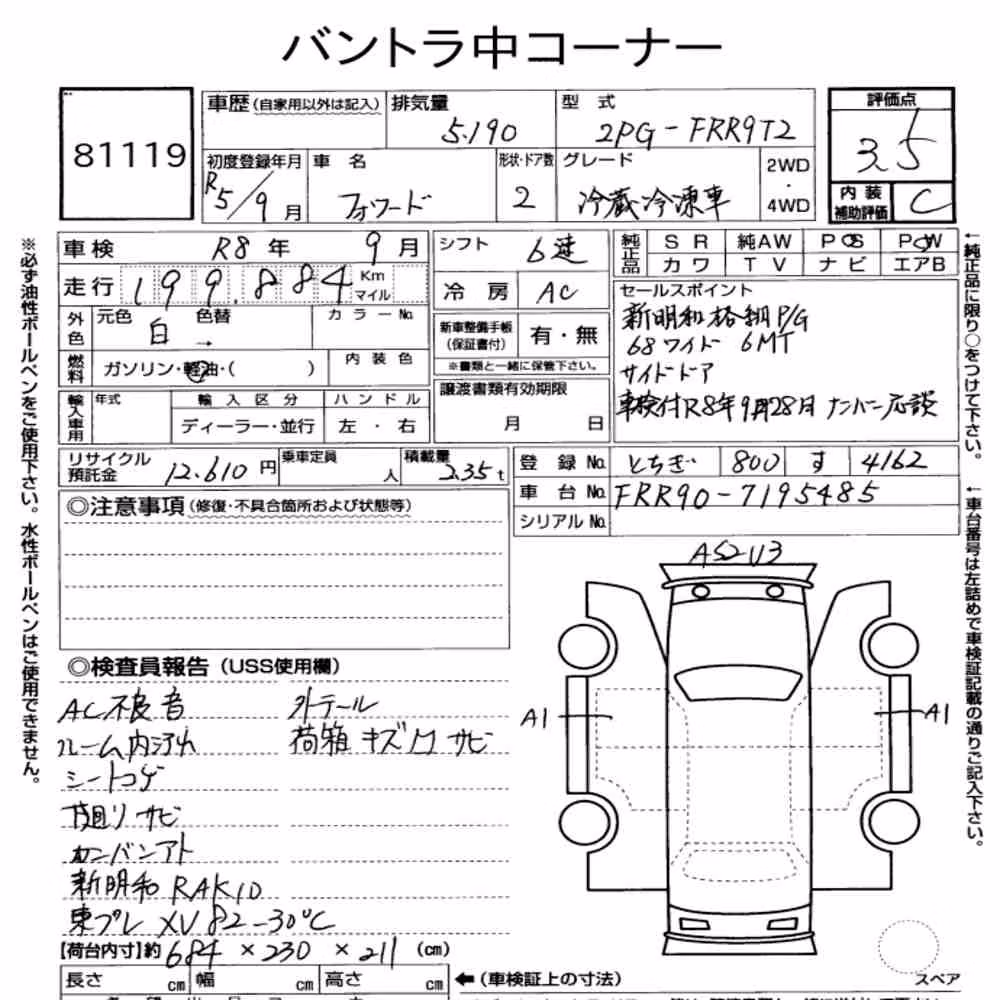 バントラ中コーナー
81119
車歴(自家用以外は記入) 排気量 5.190 型式 2PG-FRR9T2
評価点 3.5
初度登録年月 R5/9月 車名 フォワード 形状・ドア数 2 グレード 冷蔵冷凍車 2WD・4WD
内装補助評価 C
車検 R8年 9月 シフト 6速
純正品 SR 純AW PS PW
カワ TV ナビ エアB
走行 199.884 Km マイル 冷房 AC
セールスポイント
新明和格納P/G
68ワイド 6MT
サイドドア
車検付R8年9月28日 ナンバー応談
外色 元色 白 → 色替 カラーNo.
新車整備手帳(保証書付) 有・無
※書類と一緒に保管下さい。
燃料 ガソリン・軽油・( ) 内装色
譲渡書類有効期限
月 日
輸入車用 年式 輸入区分 ハンドル
ディーラー・並行 左・右
リサイクル預託金 12.610円 乗車定員 人 積載量 2.35t
登録No. とちぎ 800 す 4162
車台No. FRR90-7195485
シリアルNo.
◎注意事項(修復・不具合箇所および状態等)
◎検査員報告(USS使用欄)
AC不良 音 外テール
ルーム内汚れ 荷箱 キズ凹 サビ
シートコゲ
下廻り サビ
カンバンアト
新明和 RAK10
東プレ XV82 -30℃
【荷台内寸】約 684×230×211 (cm)
長さ cm 幅 cm 高さ cm
←(車検証上の寸法)
AS2 U3
A1
A1
スペア
※必ず油性ボールペンをご使用下さい。水性ボールペンはご使用できません。
←純正品に限り○をつけて下さい。
←車台番号は左詰めで車検証記載の通りご記入下さい。